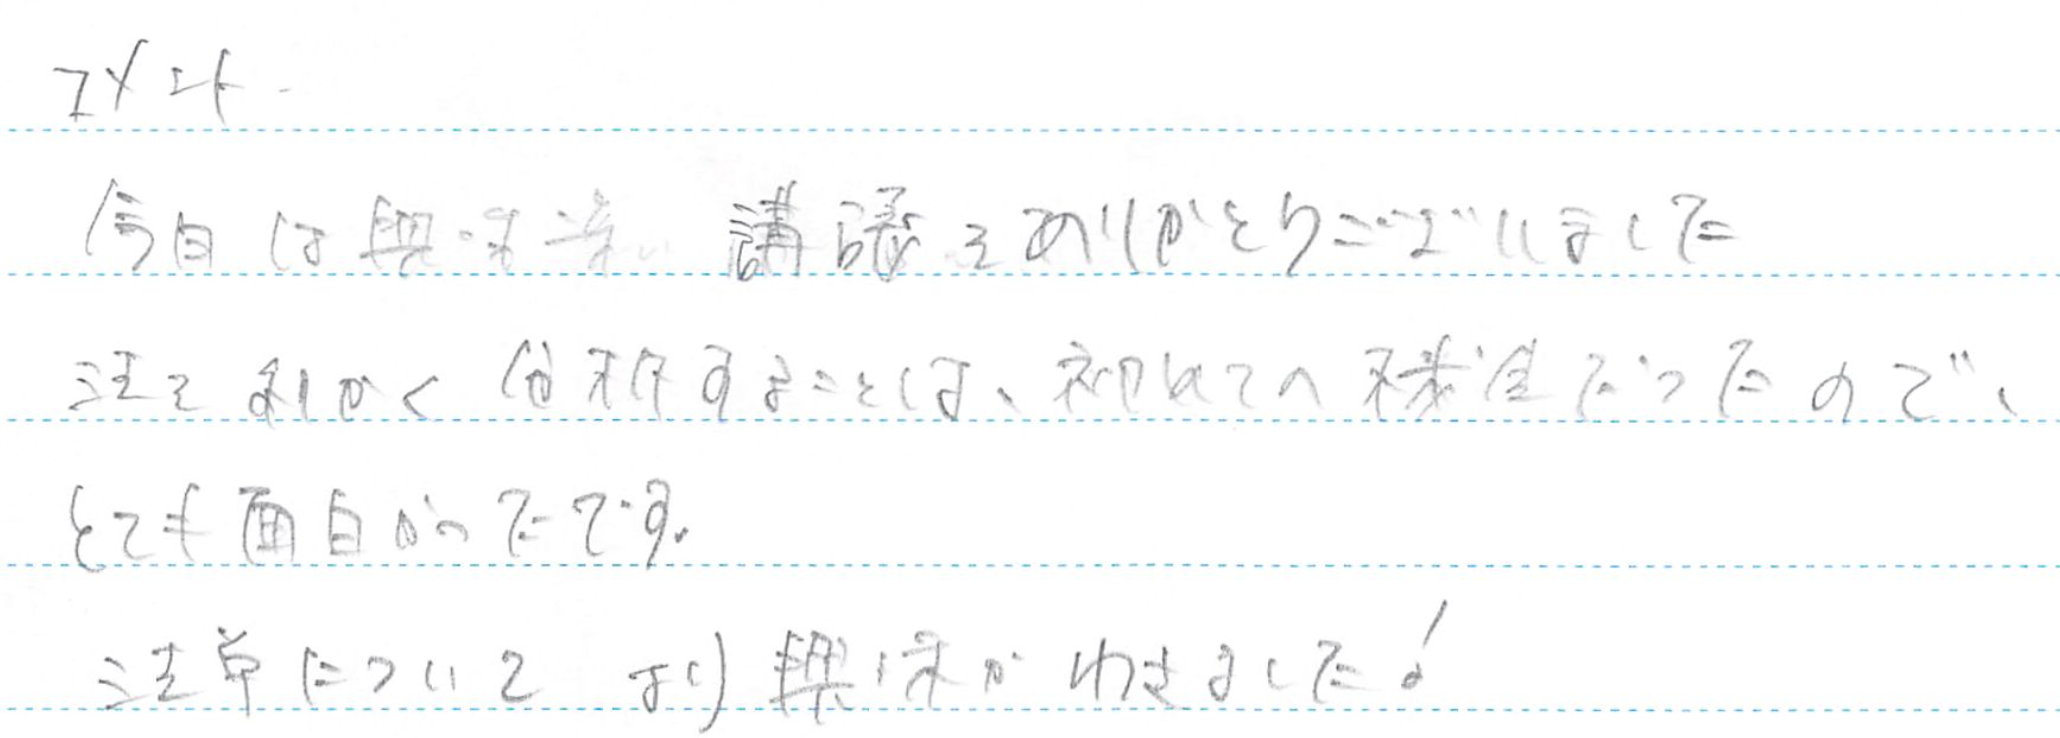 コメント
今日は興味深い講義をありがとうございました
法を細かく分析することは、初めての機会だったので、
とても面白かったです。
法律について より興味がわきました!